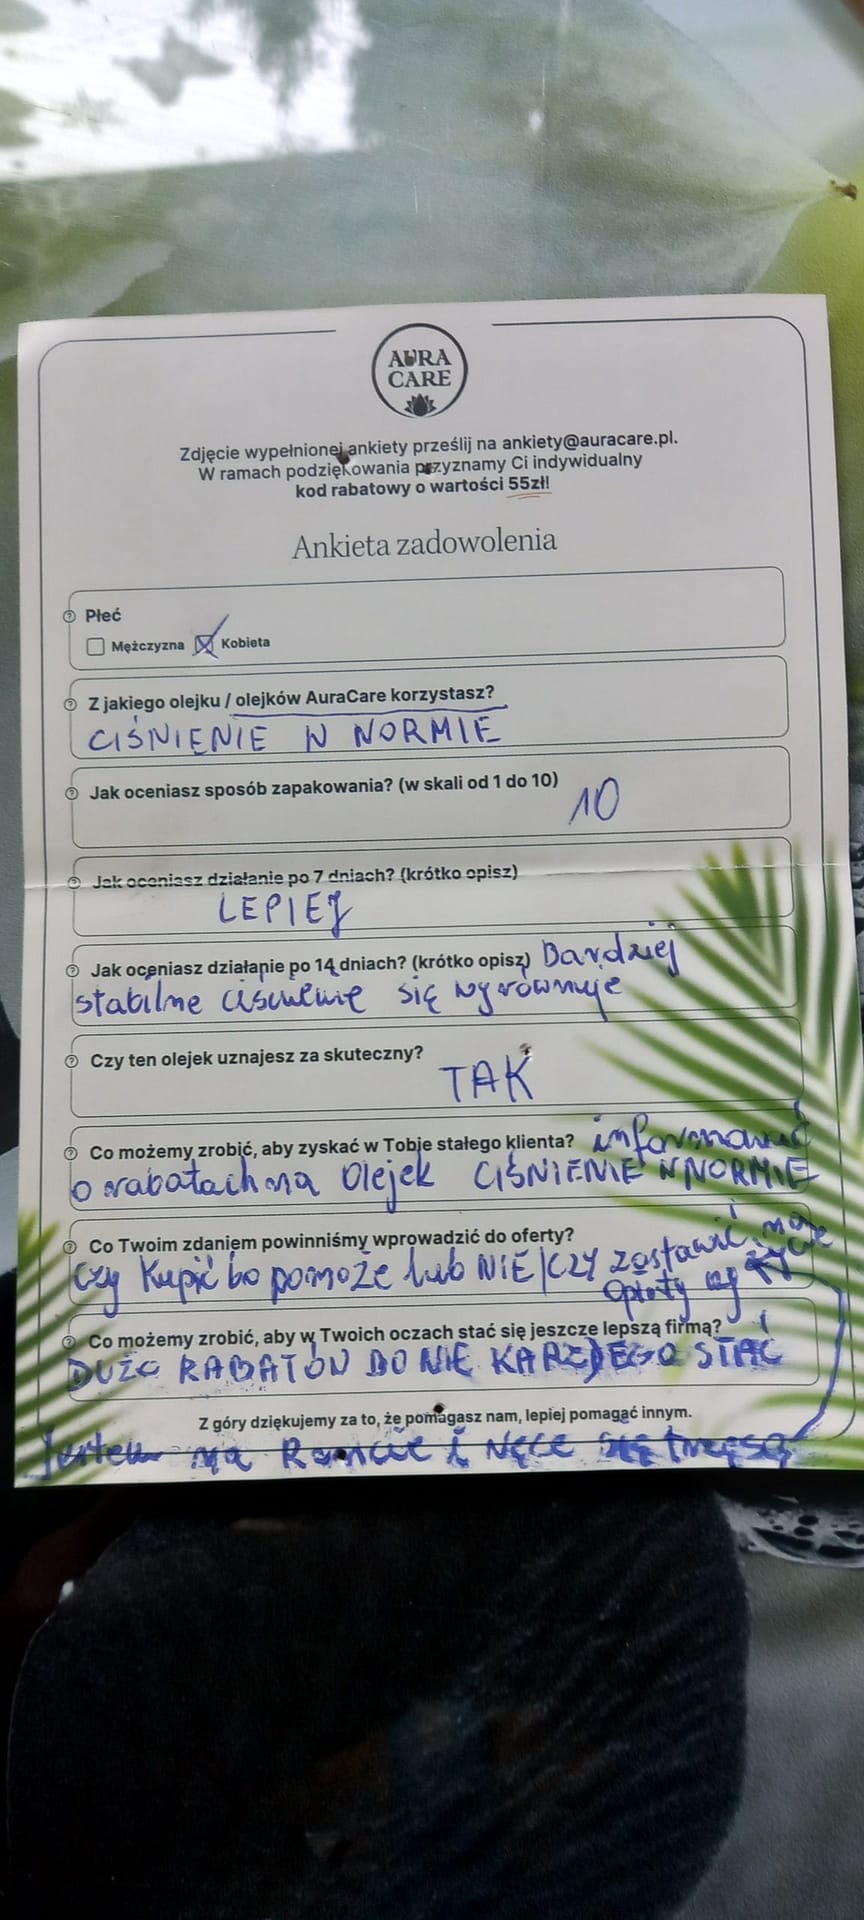 AURA
CARE
Zdjęcie wypełnionej ankiety prześlij na ankiety@auracare.pl.
W ramach podziękowania przyznamy Ci indywidualny
kod rabatowy o wartości 55zł!
Ankieta zadowolenia
Płeć
Mężczyzna Kobieta
Z jakiego olejku / olejków AuraCare korzystasz?
CIŚNIENIE W NORMIE
Jak oceniasz sposób zapakowania? (w skali od 1 do 10)
10
Jak oceniasz działanie po 7 dniach? (krótko opisz)
LEPIEJ
Jak oceniasz działanie po 14 dniach? (krótko opisz) Bardziej
stabilne ciśnienie się wyrównuje
Czy ten olejek uznajesz za skuteczny?
TAK
Co możemy zrobić, aby zyskać w Tobie stałego klienta? informować
o rabatach na Olejek CIŚNIENIE W NORMIE
Co Twoim zdaniem powinniśmy wprowadzić do oferty?
Czy Kupić bo pomoże lub NIE / CZY zostawić na
opłaty i
Co możemy zrobić, aby w Twoich oczach stać się jeszcze lepszą firmą?
DUŻO RABATÓW BO NIE KARZDEGO STAĆ
Z góry dziękujemy za to, że pomagasz nam, lepiej pomagać innym.
Jestem na Rencie i Ręce się trzęsą